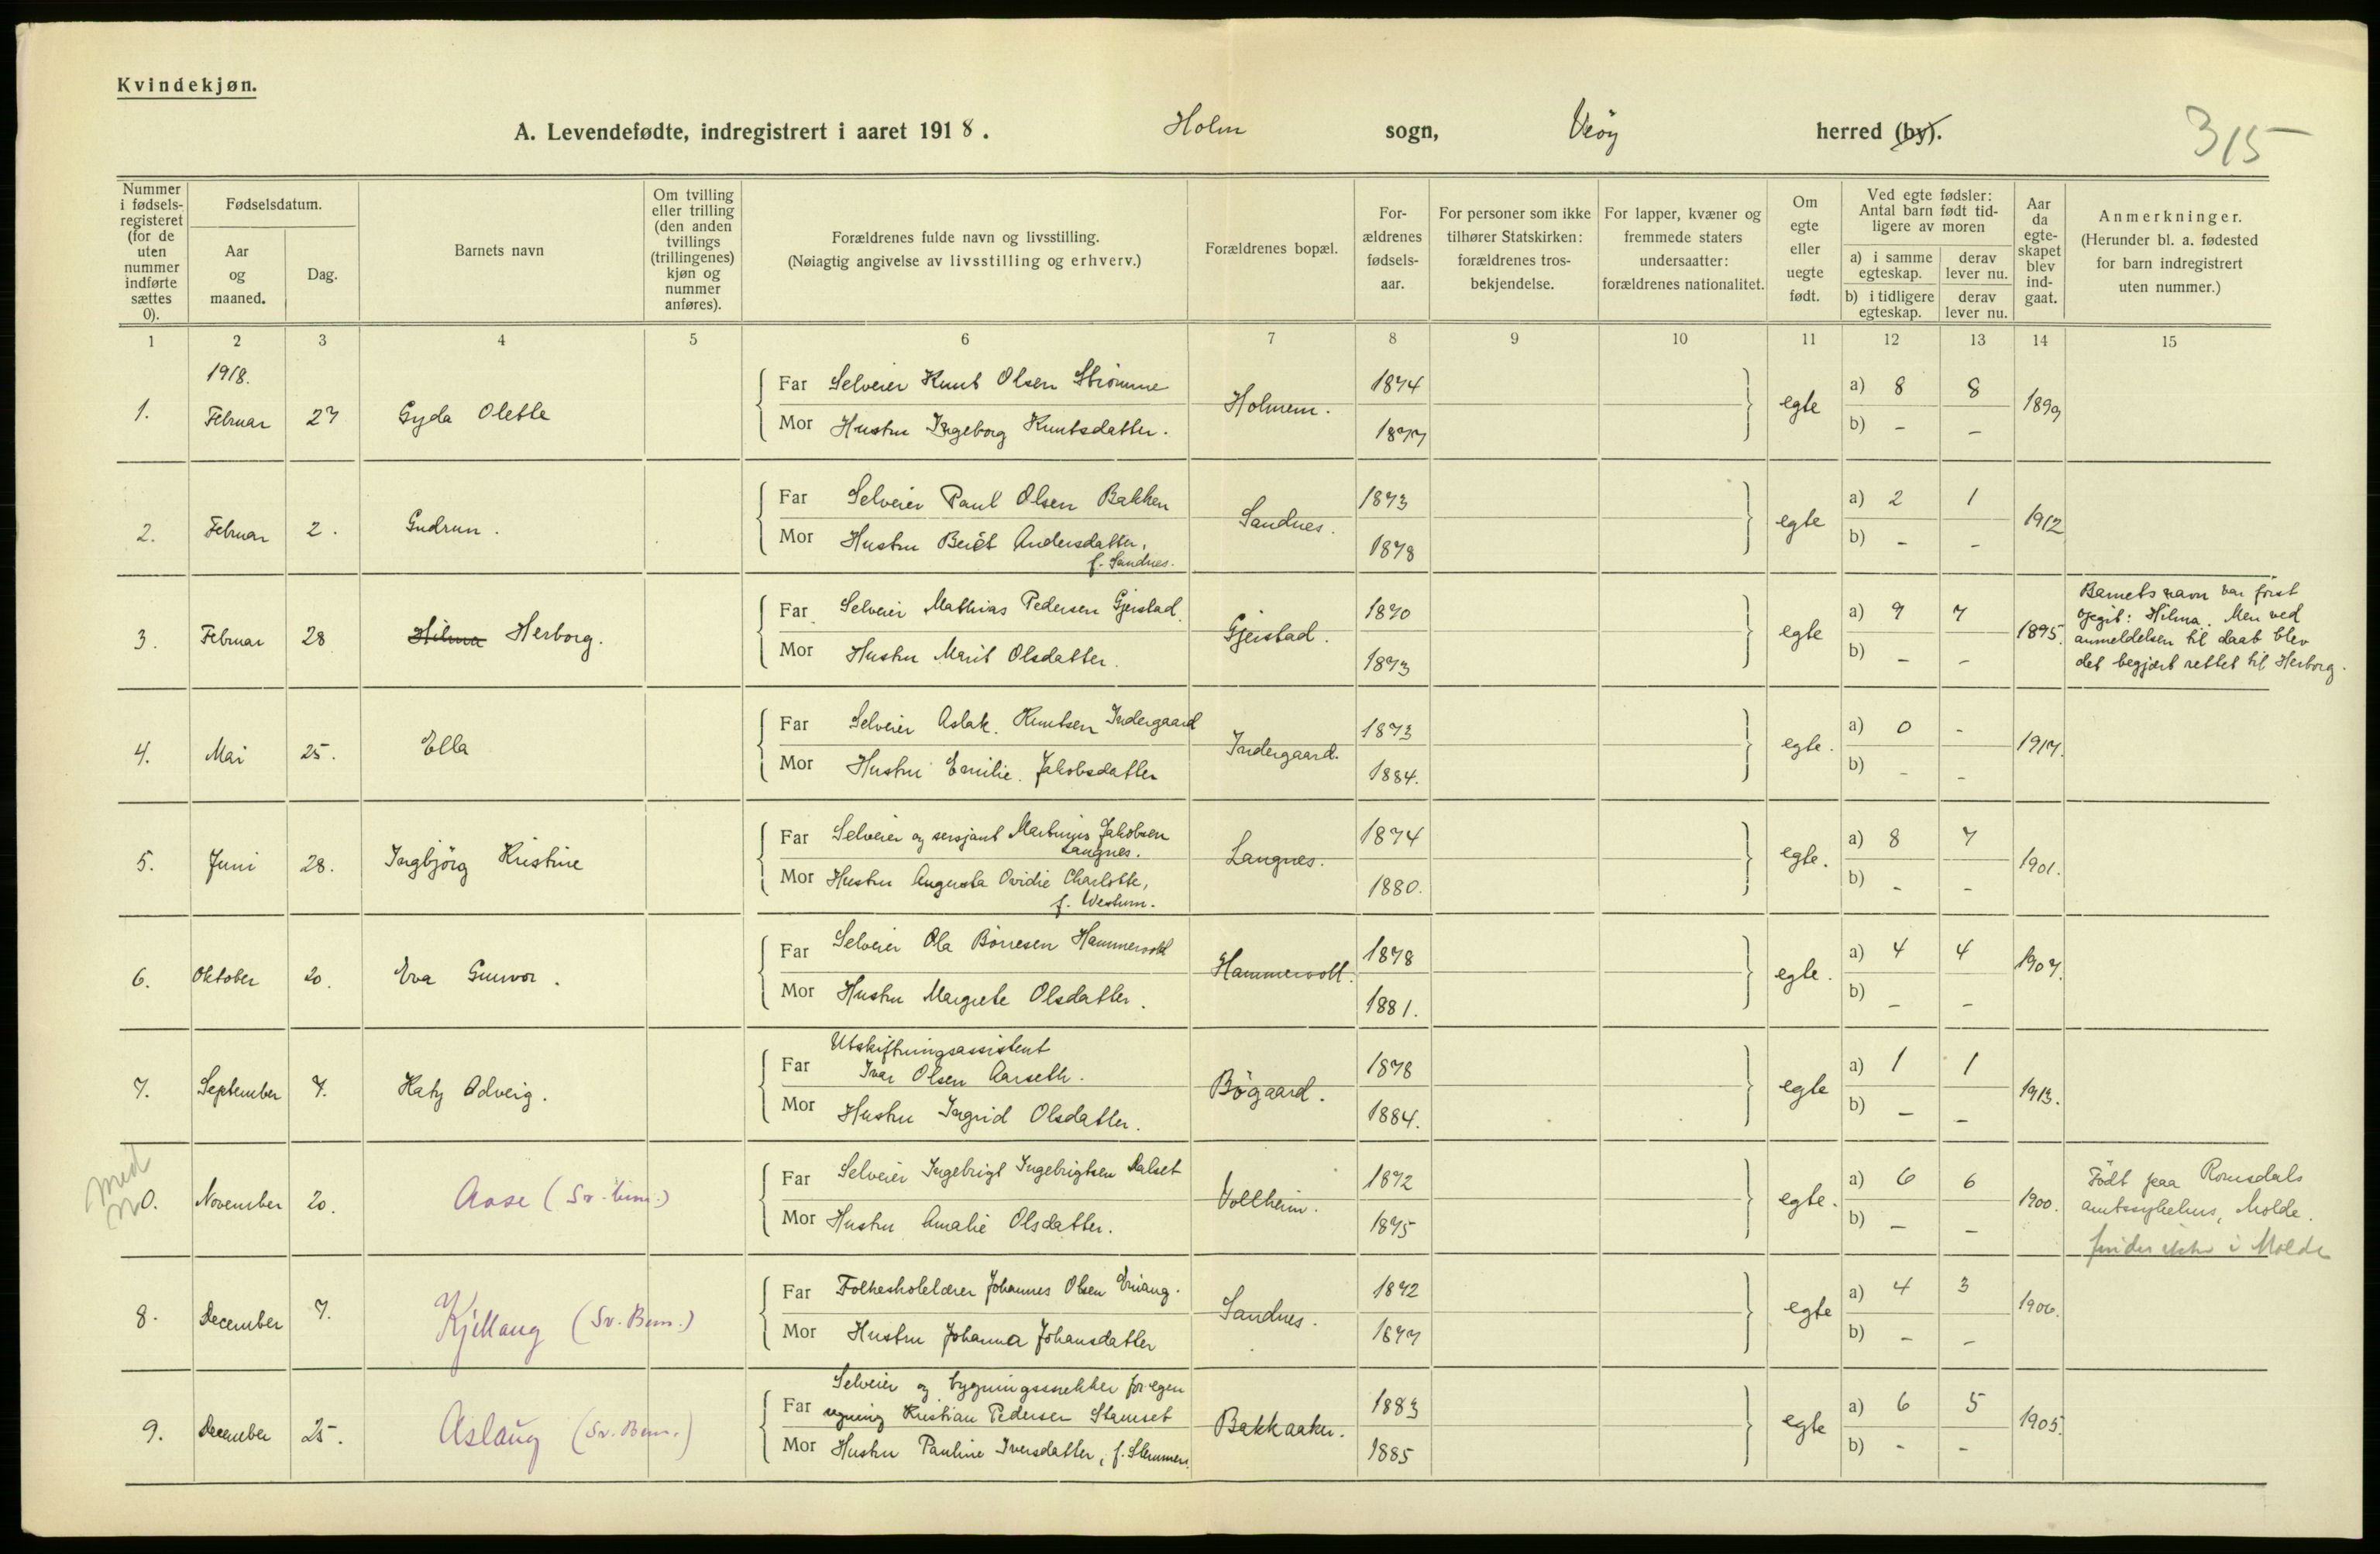 Kvindekjøn.
A. Levendefødte, indregistrert i aaret 1918. Holm sogn, Veöy herred (by).
315
Nummer i fødsels-registeret (for de uten nummer indførte sættes 0).
Fødselsdatum.
Aar og maaned.
Dag.
Barnets navn
Om tvilling eller trilling (den anden tvillings (trillingenes) kjøn og nummer anføres).
Forældrenes fulde navn og livsstilling.
(Nøiagtig angivelse av livsstilling og erhverv.)
Forældrenes bopæl.
For-ældrenes fødsels-aar.
For personer som ikke tilhører Statskirken: forældrenes tros-bekjendelse.
For lapper, kvæner og fremmede staters undersaatter: forældrenes nationalitet.
Om egte eller uegte født.
Ved egte fødsler: Antal barn født tid-ligere av moren
a) i samme egteskap.
derav lever nu.
b) i tidligere egteskap.
derav lever nu.
Aar da egte-skapet blev ind-gaat.
Anmerkninger.
(Herunder bl. a. fødested for barn indregistrert uten nummer.)
1 2 3 4 5 6 7 8 9 10 11 12 13 14 15
1918.
1. Februar 27 Gyda Olette
Far Selveier Knut Olsen Strömme Holmem. 1874 egte a) 8 8 1899
Mor Hustru Ingeborg Knutsdatter. 1877 b) - -
2. Februar 2. Gudrun.
Far Selveier Paul Olsen Bakken Sandnes. 1873 egte a) 2 1 1912
Mor Hustru Berit Andersdatter, 1878 b) - -
f. Sandnes.
3. Februar 28 Hilma Herborg.
Far Selveier Mathias Pedersen Gjerstad. Gjerstad. 1870 egte a) 9 7 1895.
Mor Hustru Marit Olsdatter. 1873 b) - -
Barnets navn var först
opgit: Hilma. Men ved
anmeldelsen til daab blev
det begjært rettet til Herborg.
4. Mai 25. Ella
Far Selveier Aslak. Knutsen Indergaard Indergaard. 1873 egte. a) 0 - 1917.
Mor Hustru Emilie. Jakobsdatter 1884. b) - -
5. Juni 28. Ingbjörg Kristine
Far Selveier og sersjant Martinus Jakobsen Langnes. Langnes. 1874 egte. a) 8 7 1901.
Mor Hustru Augusta Ovidie Charlotte, 1880. b) - -
f. Westum.
6. Oktober 20. Eva Gunvor.
Far Selveier Ola Börresen Hammervold Hammervoll. 1878 egte. a) 4 4 1907.
Mor Hustru Margrete Olsdatter. 1881. b) - -
7. September 7. Katy Odveig.
Utskiftningsassistent
Far Ivar Olsen Aarseth. Bögaard. 1878 egte a) 1 1 1913.
Mor Hustru Ingrid Olsdatter. 1884. b) - -
med
0. November 20. Aase (Sv. bem.)
Far Selveier Ingebrigt Ingebrigtsen Dalset Vollheim. 1872 egte. a) 6 6 1900.
Mor Hustru Amalie Olsdatter. 1875 b) - -
Födt paa Romsdals
amtssykehus, Molde.
findes ikke i Molde
8. December 7. Kjellaug (Sv. Bem.)
Far Folkeskolelærer Johannes Olsen Eriang. Sandnes. 1872 egte a) 4 3 1906.
Mor Hustru Johanna Johansdatter 1877 b) - -
9. December 25. Aslaug (Sv. Bem.)
Selveier og bygningssnekker for egen
Far regning Kristian Pedersen Stamset Bakkaaker. 1883 egte a) 6 5 1905.
Mor Hustru Pauline Iversdatter, f. Slemmen. 1885 b) - -